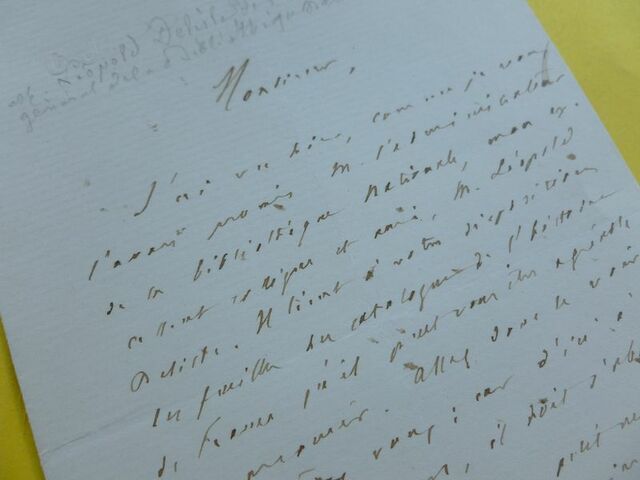 M. Léopold Delisle
général de la Bibliothèque
Monsieur,
J'ai vu hier, comme je vous
l'avais promis M. l'administrateur
de la bibliothèque Nationale, mon ex-
cellent collègue et ami, M. Léopold
Delisle. Il tient à votre disposition
les feuilles du catalogue de l'histoire
de France qu'il peut vous être agréable
Allez donc le voir
car d'ici à
il doit s'abs